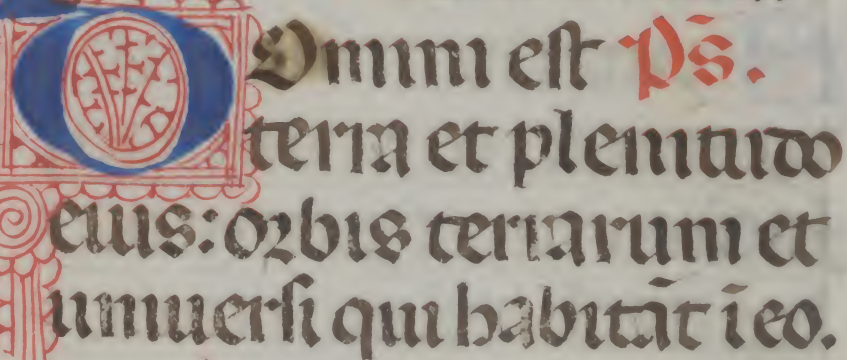 DOmini est Ps̄.
terra et plenitudo
eius: orbis terrarum et
uniuersi qui habitāt ī eo.